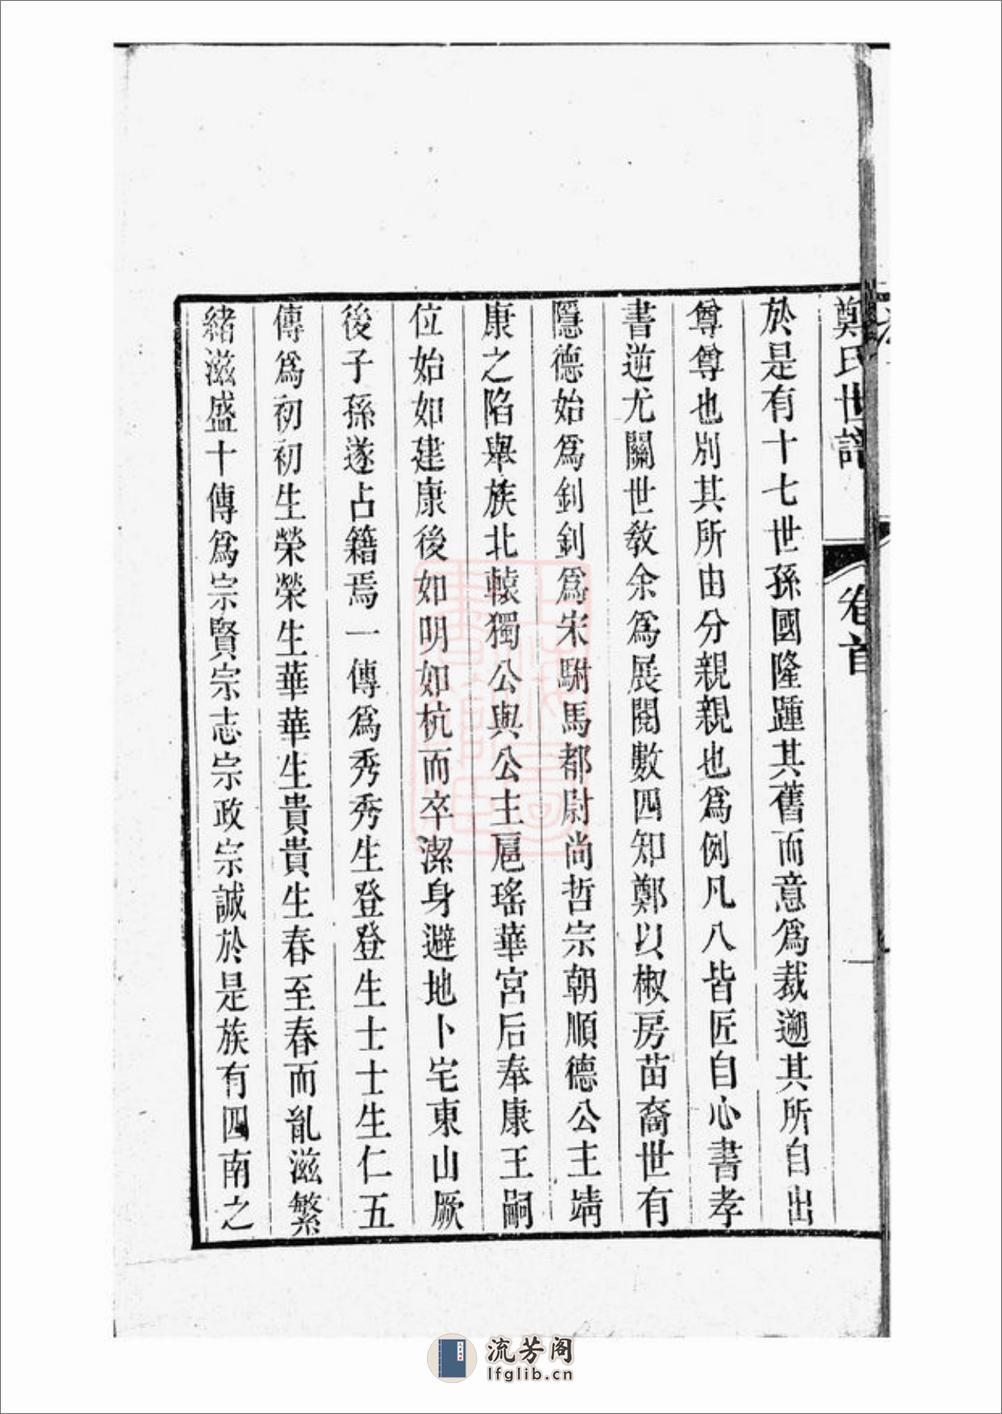 鄭氏世譜
卷首
於是有十七世孫國隆踵其舊而意爲裁遡其所自出
尊尊也別其所由分親親也爲例凡八皆匠自心書孝
書逆尤關世敎余爲展閱數四知鄭以椒房苗裔世有
隱德始爲釗釗爲宋駙馬都尉尚哲宗朝順德公主靖
康之陷舉族北轅獨公與公主扈瑤華宮后奉康王嗣
位始如建康後如明如杭而卒潔身避地卜宅東山厥
後子孫遂占籍焉一傳爲秀秀生登登生士士生仁五
傳爲初初生榮榮生華華生貴貴生春至春而胤滋繁
緒滋盛十傳爲宗賢宗志宗政宗誠於是族有四南之
流芳阁
lfglib.cn